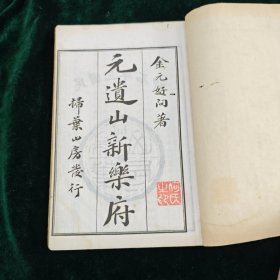 金元好问著
元遺山新樂府
掃葉山房發行